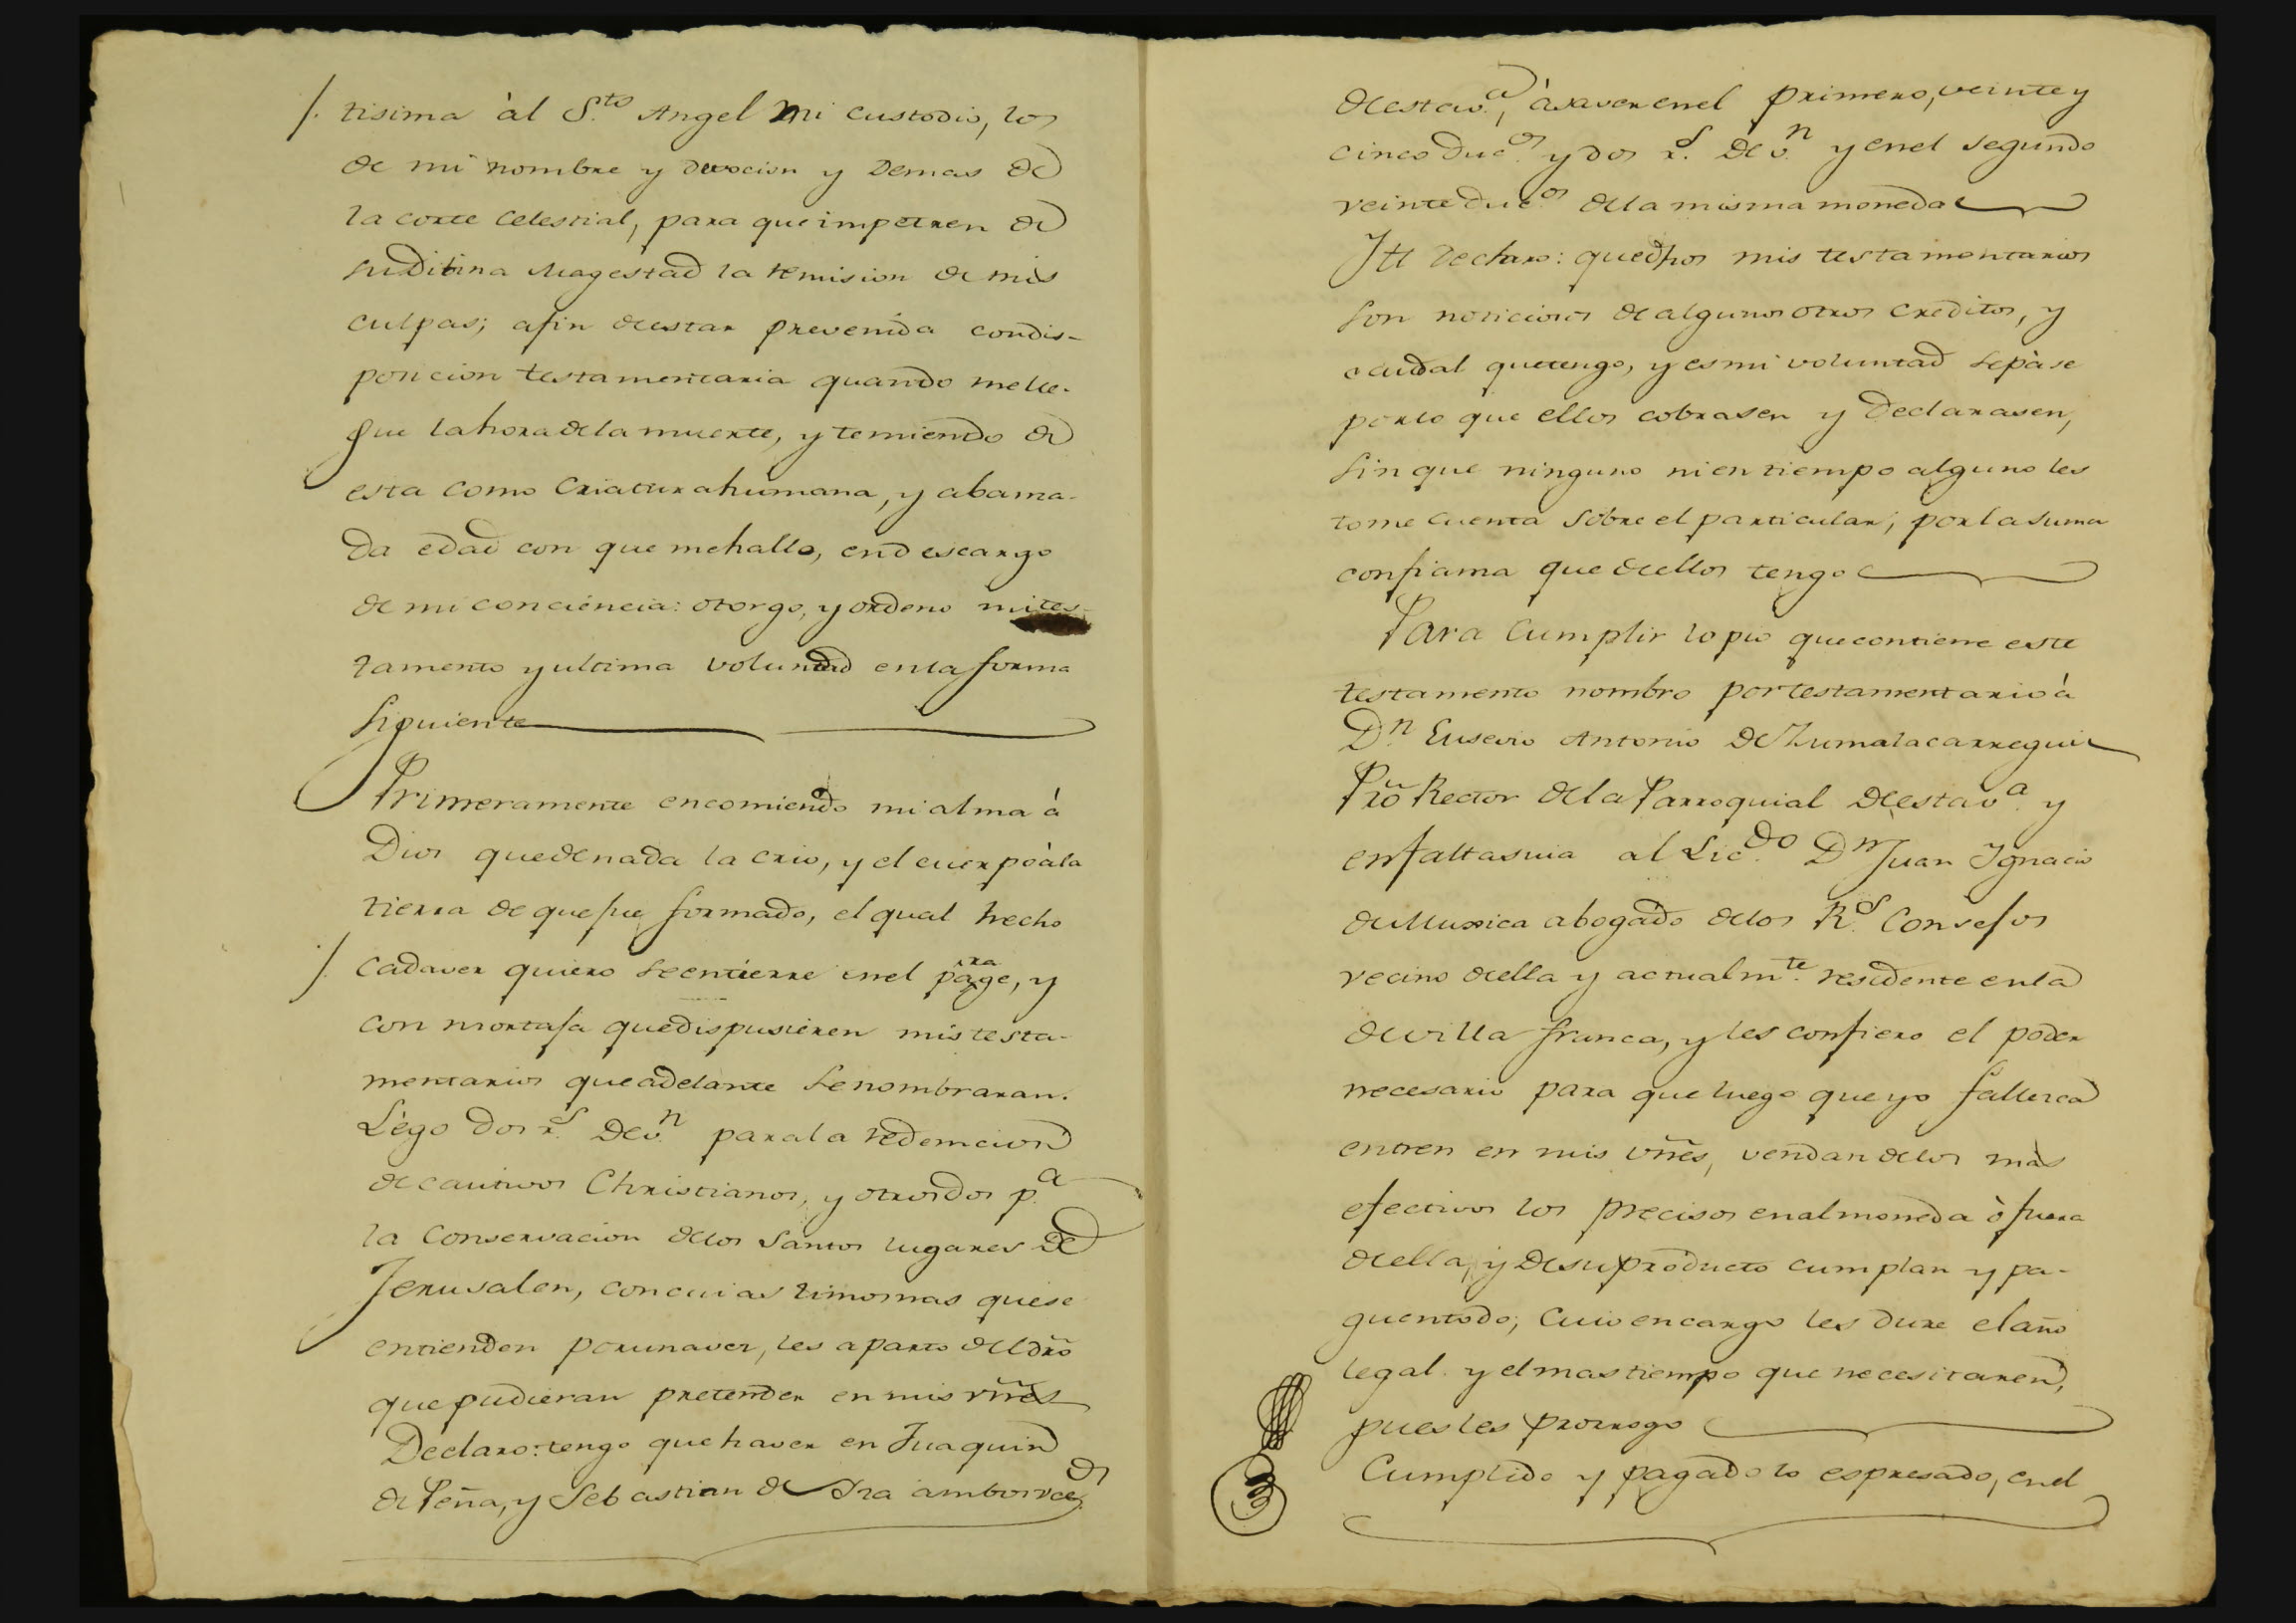 tisima àl S.to Angel mi custodio, los
de mi nombre y devocion y demas de
la corte Celestial, para que impetren de
su divina Magestad la remision de mis
culpas; afin de estar prevenida con dis-
posicion testamentaria quando me lle-
gue la hora de la muerte, y temiendo de
esta como Criatura humana, y abanza-
da edad con que me hallo, en descargo
de mi conciencia: otorgo, y ordeno mi tes-
tamento y ultima voluntad en la forma
siguiente
Primeramente encomiendo mi alma à
Dios que de nada la crio, y el cuerpo à la
tierra de que fue formado, el qual hecho
cadaver quiero se entierre en el parage, y
con mortaja que dispusieren mis testa-
mentarios que adelante se nombraran.
Lègo dos r.s de v.n para la redemcion
de cautivos Christianos, y otros dos p.a
la conservacion de los Santos lugares de
Jerusalen, con cuias limosnas que se
entienden por una vez, les aparto del dro
que pudieran pretender en mis vnes
Declaro: tengo que haver en Juaquin
de Peña, y Sebastian de Aza ambos vec.os
de esta v.a, à saver en el primero, veinte y
cinco duc.os y dos r.s de v.n y en el segundo
veinte duc.os de la misma moneda
Itt declaro: que dhos mis testamentarios
son noticiosos de algunos otros creditos, y
caudal que tengo, y es mi voluntad se pàse
por lo que ellos cobrasen y declarasen,
sin que ninguno ni en tiempo alguno les
tome cuenta sobre el particular; por la suma
confianza que de ellos tengo
Para cumplir lo pio que contiene este
testamento nombro por testamentario à
D.n Eusevio Antonio de Zumalacarregui
Pro Rector de la Parroquial de esta v.a y
en falta suia al Lic.do D.n Juan Ignacio
de Muxica abogado de los R.s Consejos
vecino de ella y actualm.te residente en la
de villa franca, y les confiero el poder
necesario para que luego que yo fallezca
entren en mis vnes, vendan de los màs
efectivos los precisos en almoneda ò fuera
de ella, y de su producto cumplan y pa-
guen todo; cuio encargo les dure el año
legal y el mas tiempo que necesitaren,
pues les prorrogo
Cumplido y pagado lo espresado, en el